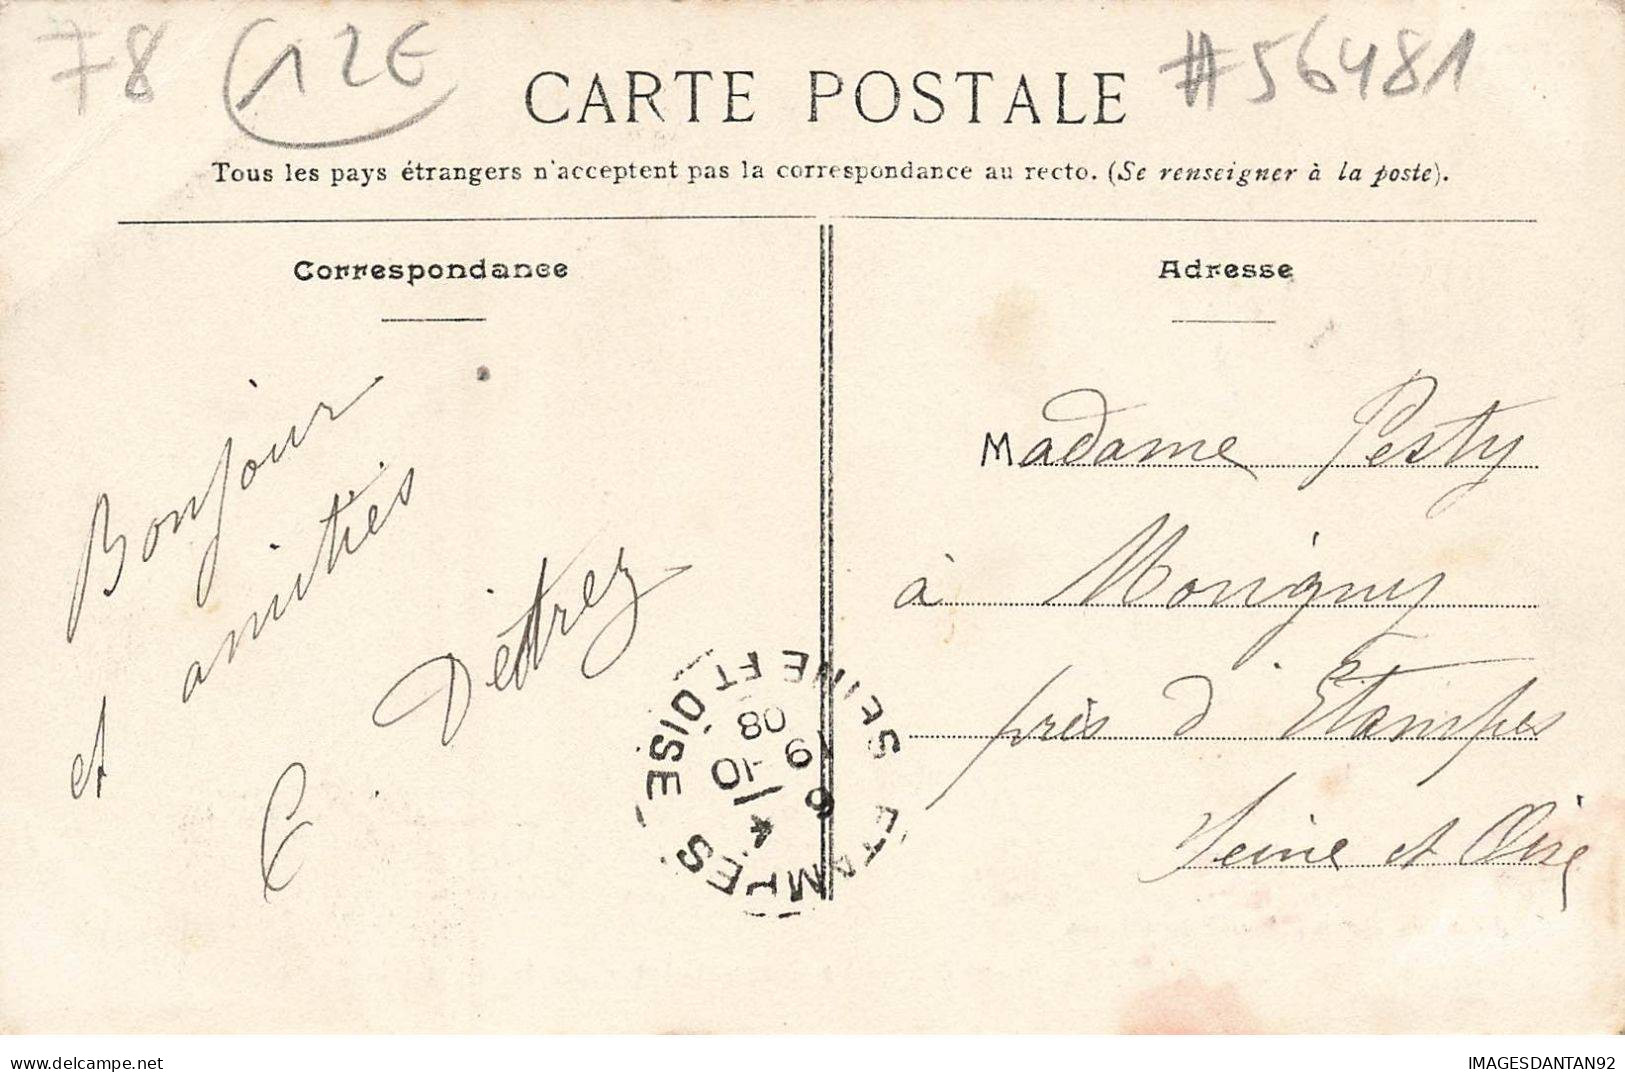 78 12€ #56481
CARTE POSTALE
Tous les pays étrangers n'acceptent pas la correspondance au recto. (Se renseigner à la poste).
Correspondance
Bonjour
et amitiés
E. Détrez
Adresse
Madame Pesty
à Morigny
près d'Etampes
Seine et Oise
ETAMPES
SEINE ET OISE
6 / 10
19
08
delcampe.net
IMAGESDANTAN92